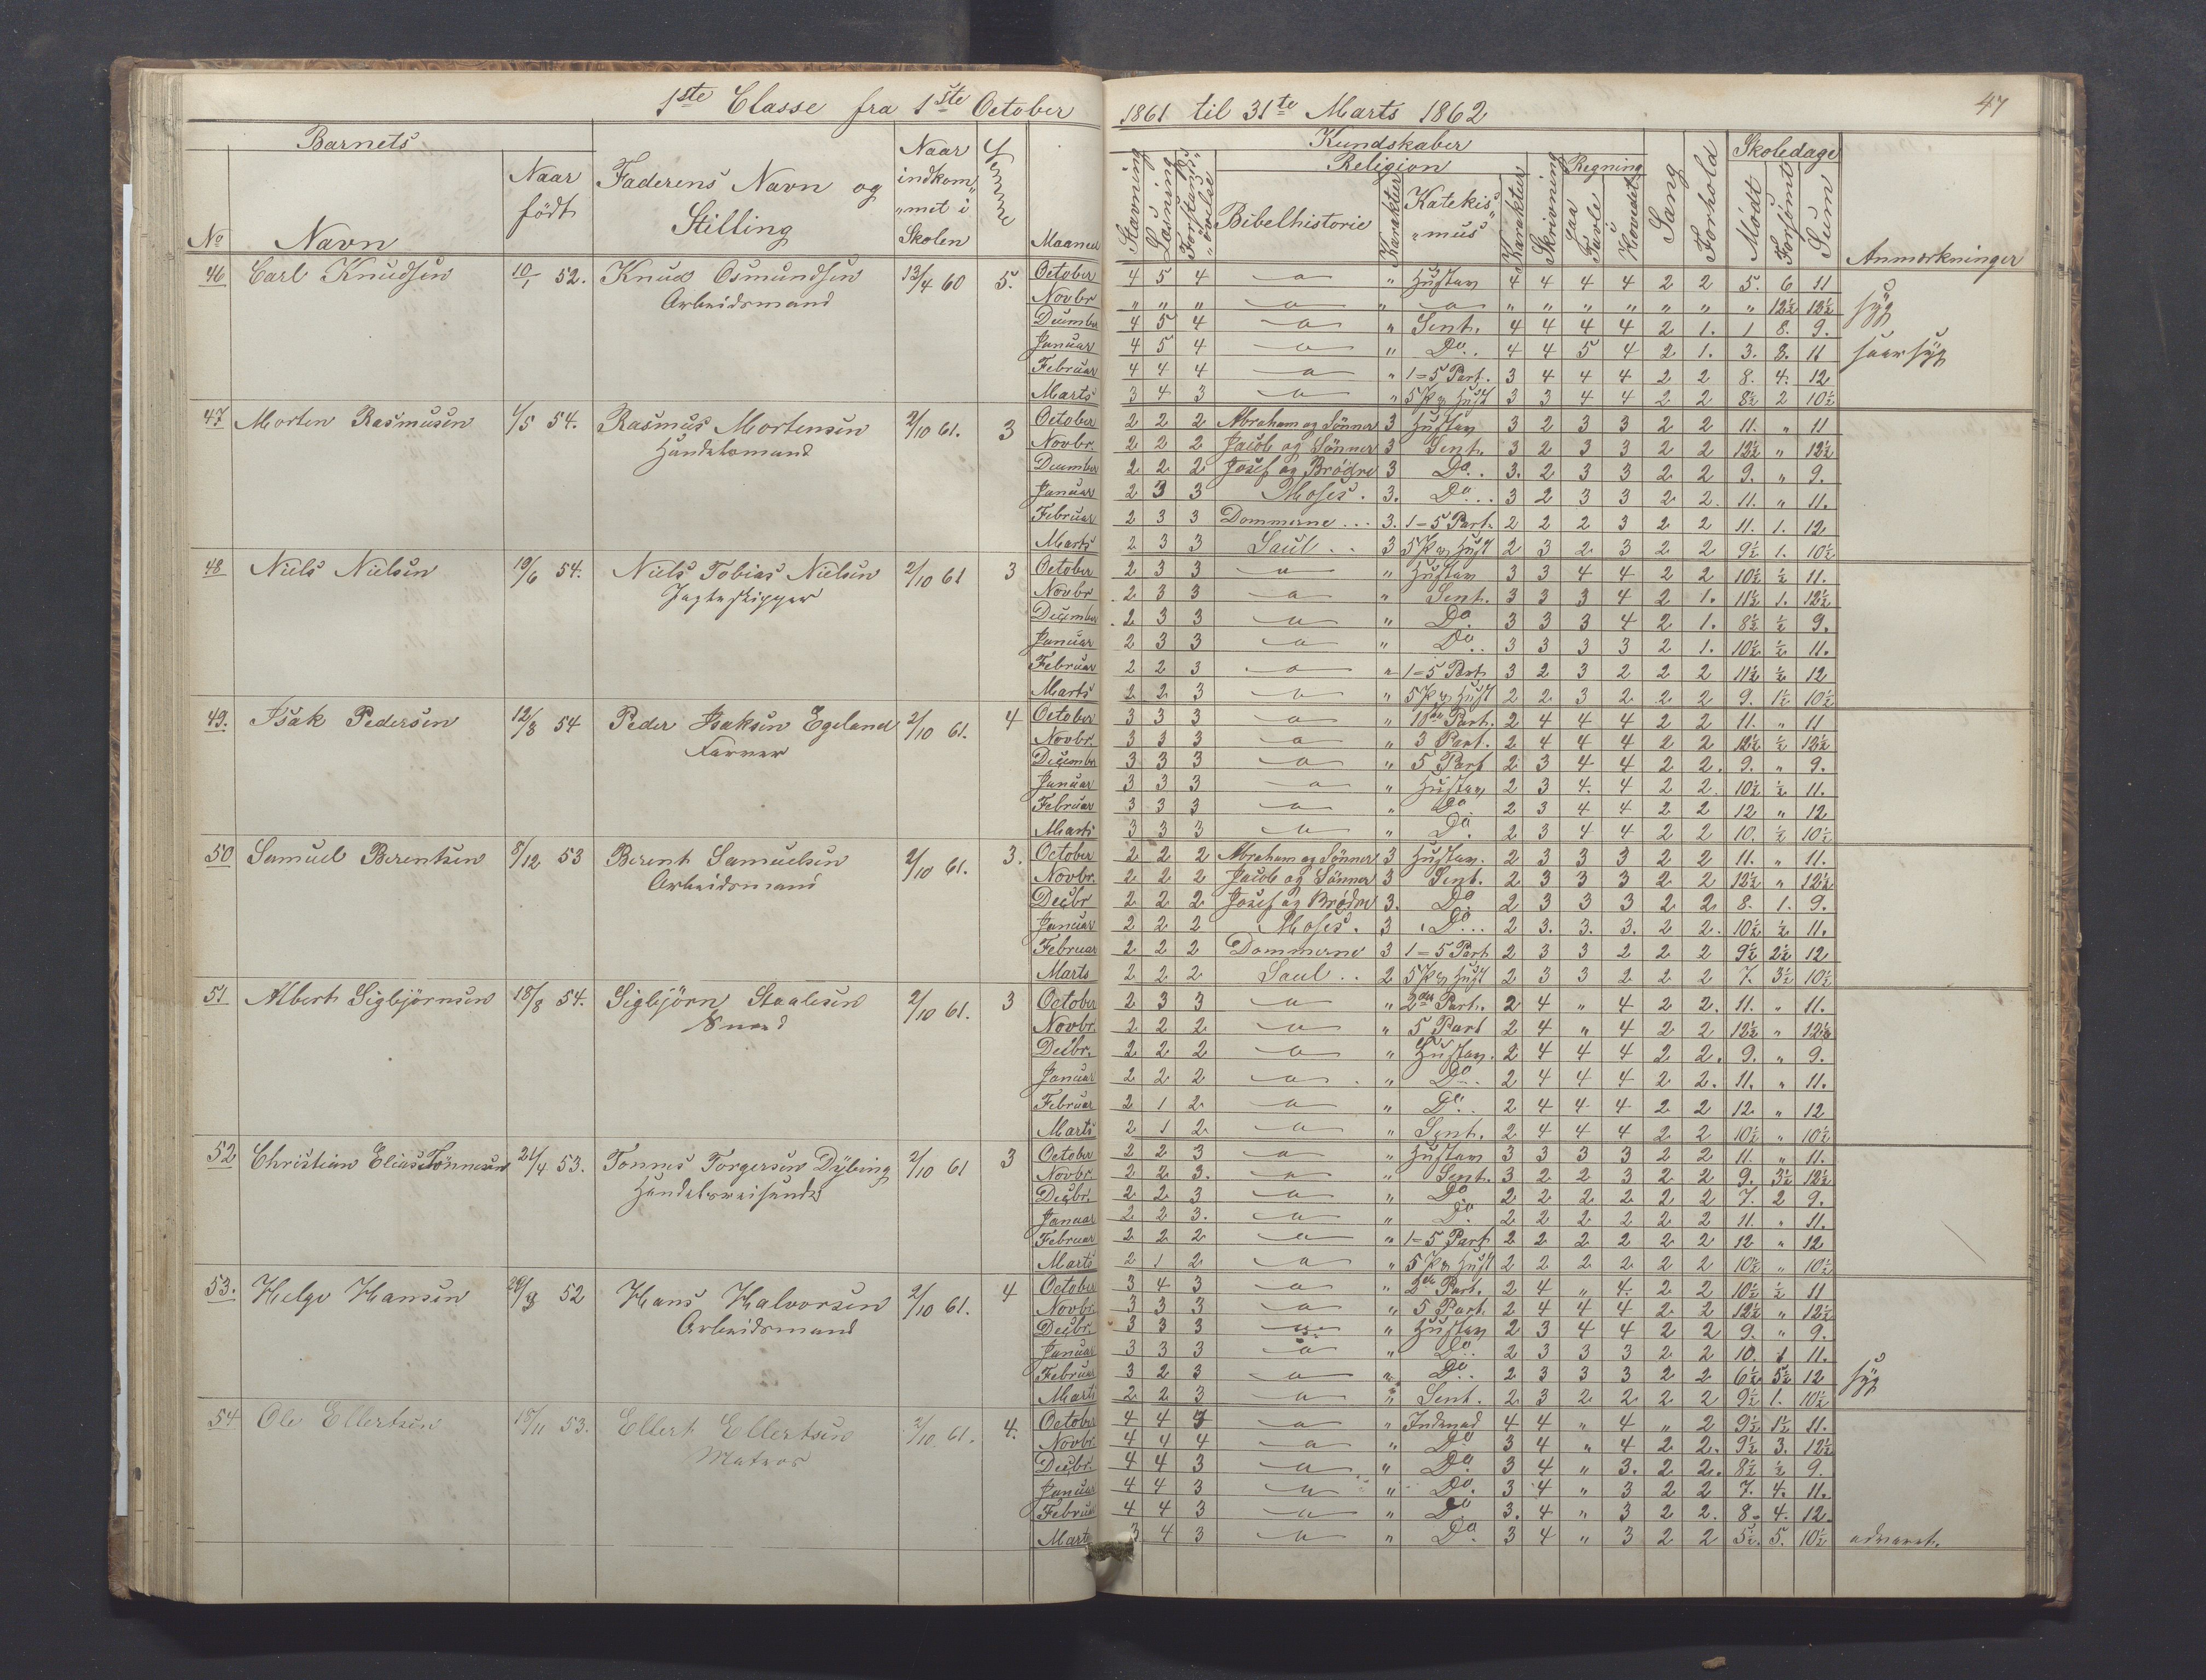 1ste Classe fra 1ste October 1861 til 31te Marts 1862
47
Barnets
Kundskaber
Skoledage
Religion
Regning
No Navn
Naar født
Faderens Navn og Stilling
Naar indkommet i Skolen
Maaned
Stavning Læsning Bibelhistorie Karakter Katekismus Karakter Skrivning paa Tavle i Hovedet Sang Forhold Mødt Forsømt Sum Anmærkninger
46 Carl Knudsen 10/1 52. Knud Osmundsen 13/4 60 5. October 4 5 4 " 4 4 4 4 2 2 5. 6 11
Arbeidsmand Novbr " " " " " " " " " " " 12½ 12½ syg
December 4 5 4 " Sent. 4 4 4 4 2 1. 1 8. 9.
Januar 4 5 4 " Do. 4 4 5 4 2 1. 3. 8. 11 syg
Februar 4 4 4 " 1=5 Part. 3 4 4 4 2 2 8. 4. 12
Marts 3 4 3 " 3 3 4 4 2 2 8½ 2 10½
47 Morten Rasmusen 1/5 54. Rasmus Mortensen 2/10 61. 3 October 2 2 2 Abraham og Sønner 3 3 2 3 3 2 2 11. " 11
Handelsmand Novbr. 2 2 2 Jacob og Sønner 3 Sent. 3 2 3 3 2 2 12½ " 12½
December 2 2 2 Josef og Brødre 3 Do. 3. 2 3 3 2 2 9. " 9.
Januar 2 3 3 Moses. 3. Do. 3 2 3 3 2 2. 11. " 11.
Februar 2 3 3 Dommerne 3. 1=5 Part. 2 2 2 3 2 2 11. 1. 12
Marts 2 3 3 Saul 3 2 3 2 3 2 2 9½ 1. 10½
48 Niels Nielsen 19/6 54. Niels Tobias Nielsen 2/10 61 3 October 2 3 3 " 3 3 4 4 2 2 10½ ½ 11.
Jagteskipper Novbr 2 3 3 " Sent. 3 3 3 4 2 1. 11½ 1. 12½
December 2 3 3 " Do. 3 3 3 4 2 1. 8½ ½ 9.
Januar 2 3 3 " Do. 3 3 3 3 2 1. 10½ ½ 11.
Februar 2 2 3 " 1=5 Part 3 2 3 2 2 2 11½ ½ 12
Marts 2 2 3 " 2 2 3 2 2 2 9. 1½ 10½
49. Isak Pedersen 12/8 54 Peder Isaksen Egeland 2/10 61. 4 October 3 3 3 " Part. 2 4 4 4 2 2 11. " 11
Novbr. 3 3 3 " 3 Part. 2 4 4 4 2 2 12½ 12½
December 3 3 3 " 5 Part 2 3 4 4 2 2. 9. " 9.
Januar 3 3 3 " 2 3 4. 4 2 2. 10½ ½ 11.
Februar 3 3 3 " Do 2 3 4 4 2 2 12 " 12
Marts 3 3 3 " Do. 2 3 4 4 2 2 10. ½ 10½
50 Samuel Berentsen 8/12 53 Berent Samuelsen 2/10 61. 3. October 2 2 2 Abraham og Sønner 3 2 3 3 3 2 2 11. " 11.
Arbeidsmand Novbr. 2 2 2 Jacob og Sønner 3 Sent. 2 3 3 3 2 2 12½ " 12½
Decbr 2 2 2 Josef og Brødre 3. Do 2 3 3 3 2 2 8. 1. 9.
Januar 2 2 2 Moses. 3 Do 2 3. 3. 3. 2 2. 10½ ½ 11.
Februar 2 2 2 Dommerne 3 1=5 Part 2 3 3 2 2 2 9½ 2½ 12
Marts 2 2 2 Saul 2 2 3 3 2 2 2 7. 3½ 10½
51 Albert Sigbjörnsen 18/8 54. Sigbjörn Staalesen 2/10 61. 3 October 2 3 3 " 2den Part. 2 4 " 4 2 2. 11. " 11.
Smed Novbr. 2 2 2 " 5 Part 2 4 " 4 2 2 12½ " 12½
Decbr. 2 2 2 " 2 4 4 4 2 2. 9. " 9.
Januar 2 2 2 " Do 2 4 4 4 2 2. 11. " 11.
Februar 2 1 2 " Do. 2 4 4 4 2 2 12 " 12
Marts 2 1 2 " Sent. 2 4 4 4 2 2 10½ " 10½
52 Christian Elias Tönnesen 21/4 53. Tonnes Torgersen Dybing 2/10 61 3 October 2 2 3 " 3 3 3 3 2 2 11. " 11.
Handelsreisende Novbr. 2 2 3. " Sent. 3 2 2 3 2 2 9. 3½ 12½
Decbr. 2 2 3 " Do 2 2 2 2 2 2 7. 2 9.
Januar 2 2 3. " Do. 2 2 2 2 2 2 11. " 11.
Februar 2 2 2 " 1=5 Part 2 2 2 2 2 2 12 " 12
Marts 2 1 2 " 2 2 2 2 2 2 10½ " 10½
53. Helge Hansen 52 Hans Halvorsen 2/10 61. 4 October 3 4 3 " Part. 2 4 " 4. 2 2 10½ ½ 11
Arbeidsmand Novbr. 3 3 3 " 5 Part. 2 4 4 4 2 2 12½ " 12½
Decbr. 3 3 3 " 2 3 4 4 2 2 9. " 9.
Januar 3 3 3 " Do. 2 3 3 3 2 2 10. 1 11.
Februar 3 2 3 " Do. 2 3 3 3 2 2 6½ 5½ 12 syg
Marts 2 2 3 " Sent. 2 3 2 2 2 2 9½ 1. 10½
54 Ole Ellertsen 18/11 53. Ellert Ellertsen 2/10 61. 4. October 4 4 3 " 4 4 " 4 " 2 9½ 1½ 11.
Matros Novbr. 4 4 4 " Do 3 4 " 4 2 2. 9½ 3. 12½
Decbr. 4 4 3 " Do. 3 4 " 3. 2 2. 8½ ½ 9.
Januar 4 4 3 " Do. 3 4 " 3 2 2 7. 4. 11.
Februar 4 4 3 " Do 3. 4 " 3 2 2. 8. 4. 12.
Marts 3 4 3 " Do. 3 4 " 3 2 2 5½. 5. 10½